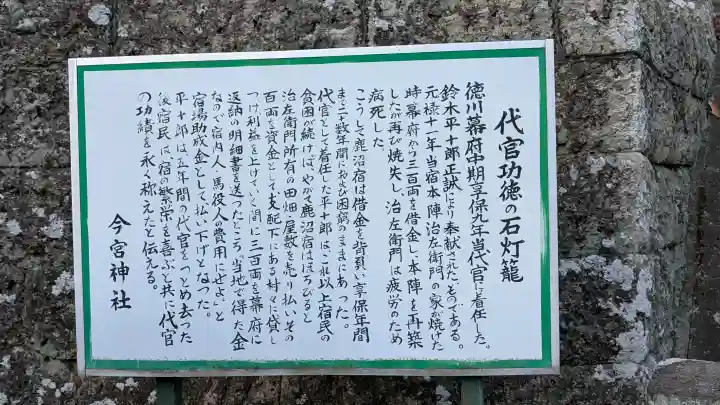 代官功徳の石灯籠
徳川幕府中期享保九年当代官に着任した。
鈴木平十郎正誠により奉献されたものである。
元禄十一年当宿本陣治左衛門の家が焼けた
時幕府から三百両を借金し、本陣を再築
したが再び焼失し、治左衛門は疲労のため
病死した。
こうして鹿沼宿は借金を背負い享保年間
まで二十数年間におよび困窮のままにあった。
代官として着任した平十郎は、これ以上宿民の
貧困が続けば、やがて鹿沼宿はほろびると
治左衛門所有の田畑、屋敷を売り払いその
百両を資金として支配下にある村々に貸し
つけ利益を上げていく間に三百両を幕府に
返納の明細書を送ったところ「当地で得た金
なので宿内人、馬役人の費用にせよ」と
宿場助成金として払い下げとなった。
平十郎は五年間の代官をつとめ去った
後宿民は宿の繁栄を喜ぶと共に代官
の功績を永く称えたと伝える。
今宮神社